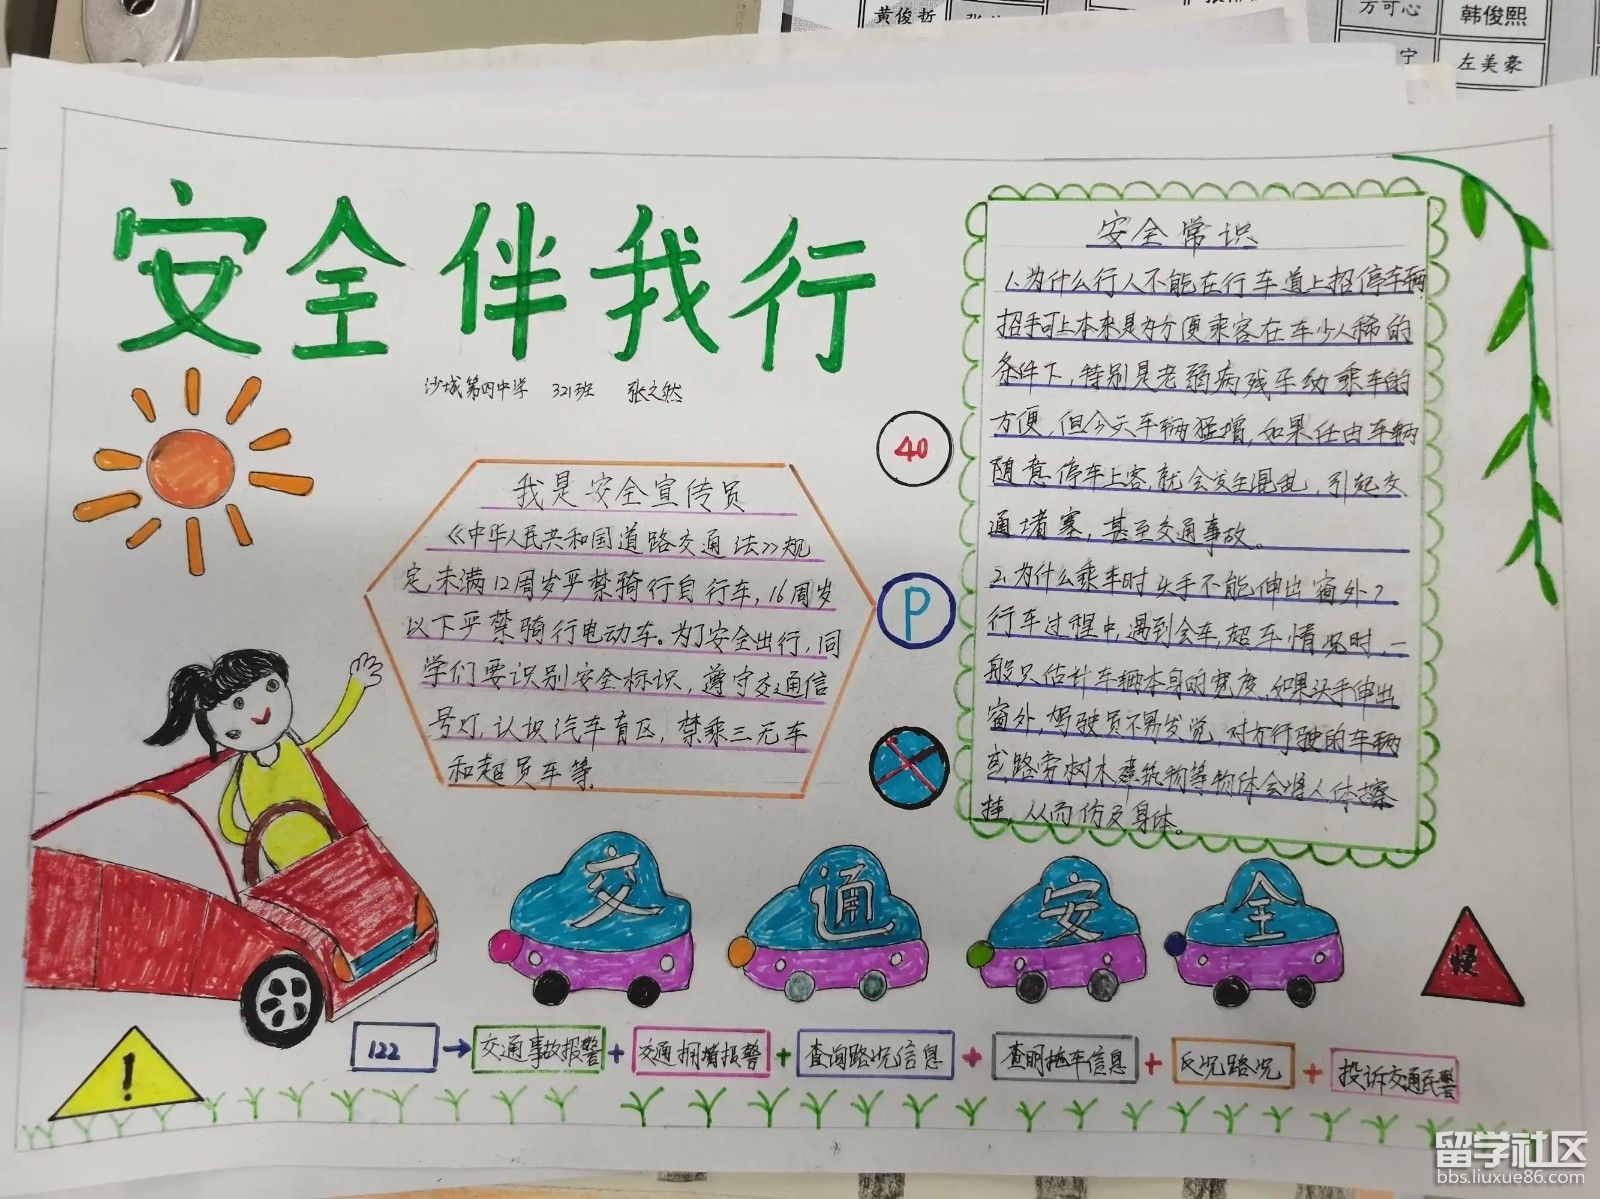 黄俊哲
万可心
韩俊熙
宁
左美豪
安全伴我行
沙城第四中学 321班 张之然
40
P
我是安全宣传员
《中华人民共和国道路交通法》规
定未满12周岁严禁骑行自行车,16周岁
以下严禁骑行电动车。为了安全出行,同
学们要识别安全标识,遵守交通信
号灯,认识汽车盲区,禁乘三无车
和超员车等.
安全常识
1.为什么行人不能在行车道上招停车辆
招手可上本来是为方便乘客在车少人稀的
条件下,特别是老弱病残孕幼乘车的
方便,但今天车辆猛增,如果任由车辆
随意停车上客,就会发生混乱,引起交
通堵塞,甚至交通事故。
2.为什么乘车时头手不能伸出窗外?
行车过程中,遇到会车,超车情况时,一
般只估计车辆本身的宽度,如果头手伸出
窗外,驾驶员不易发觉,对方行驶的车辆
或路旁树木建筑物等物体会将人体擦
挂,从而伤及身体。
交 通 安 全
慢
!
122 → 交通事故报警 + 交通拥堵报警 + 查询路况信息 + 查明拖车信息 + 反况路况 + 投诉交通民警
留学社区
bbs.liuxue86.com